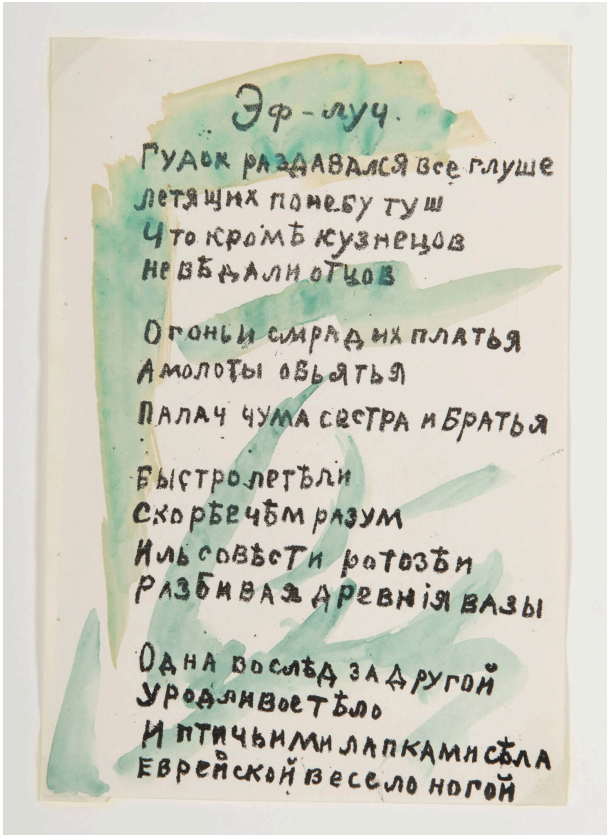 Эф-луч.
Гудок раздавался все глуше
летящих по небу туш
Что кромѣ кузнецов
не вѣдали отцов
Огонь и смрад их платья
А молоты обьятья
Палач чума сестра и братья
Быстро летѣли
Скорѣе чѣм разум
Иль совѣсти ротозѣи
Разбивая древнія вазы
Одна вослѣд за другой
Уродливое тѣло
И птичьими лапками сѣла
Еврейской весело ногой